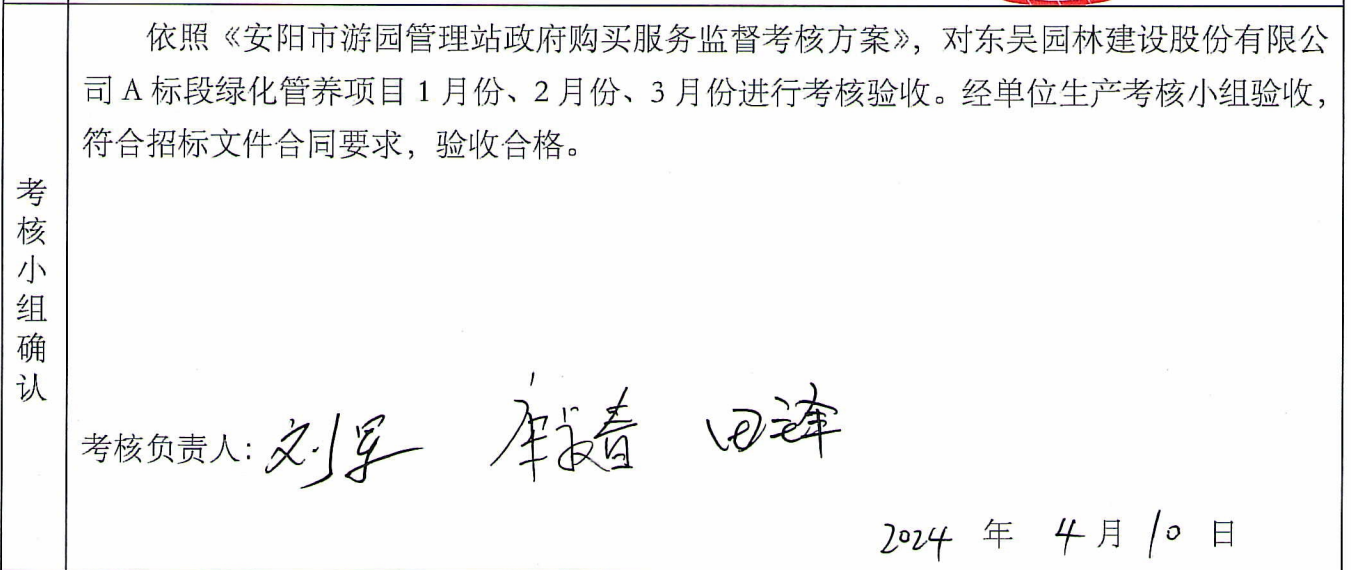 依照《安阳市游园管理站政府购买服务监督考核方案》，对东吴园林建设股份有限公
司 A 标段绿化管养项目 1 月份、2 月份、3 月份进行考核验收。经单位生产考核小组验收，
符合招标文件合同要求，验收合格。
考核小组确认
考核负责人：刘军 田泽
2024 年 4 月 10 日